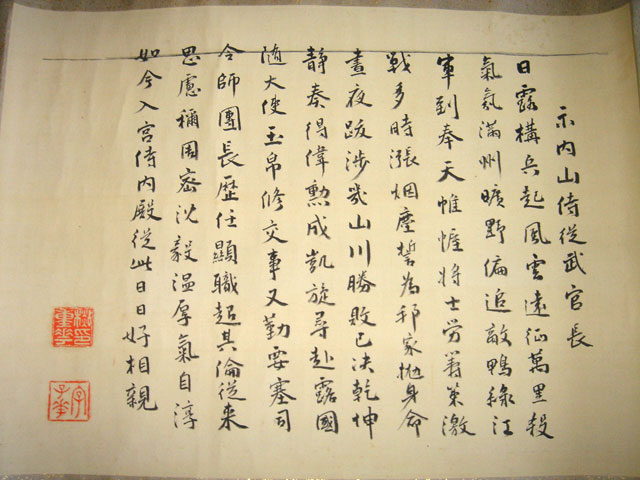 示内山侍從武官長
日露構兵起風雲遠征萬里殺
氣氛滿州曠野偏追敵鴨綠江
軍到奉天帷幄将士労籌策激
戰多時漲烟塵誓為邦家抛身命
晝夜跋涉幾山川勝敗已决乾坤
靜奏得偉勲成凱旋尋赴露國
随大使玉帛修交事又勤要塞司
令師團長歴任顯職超其倫從来
思慮稠周密沈毅温厚氣自淳
如今入宮侍内殿從此日日好相親